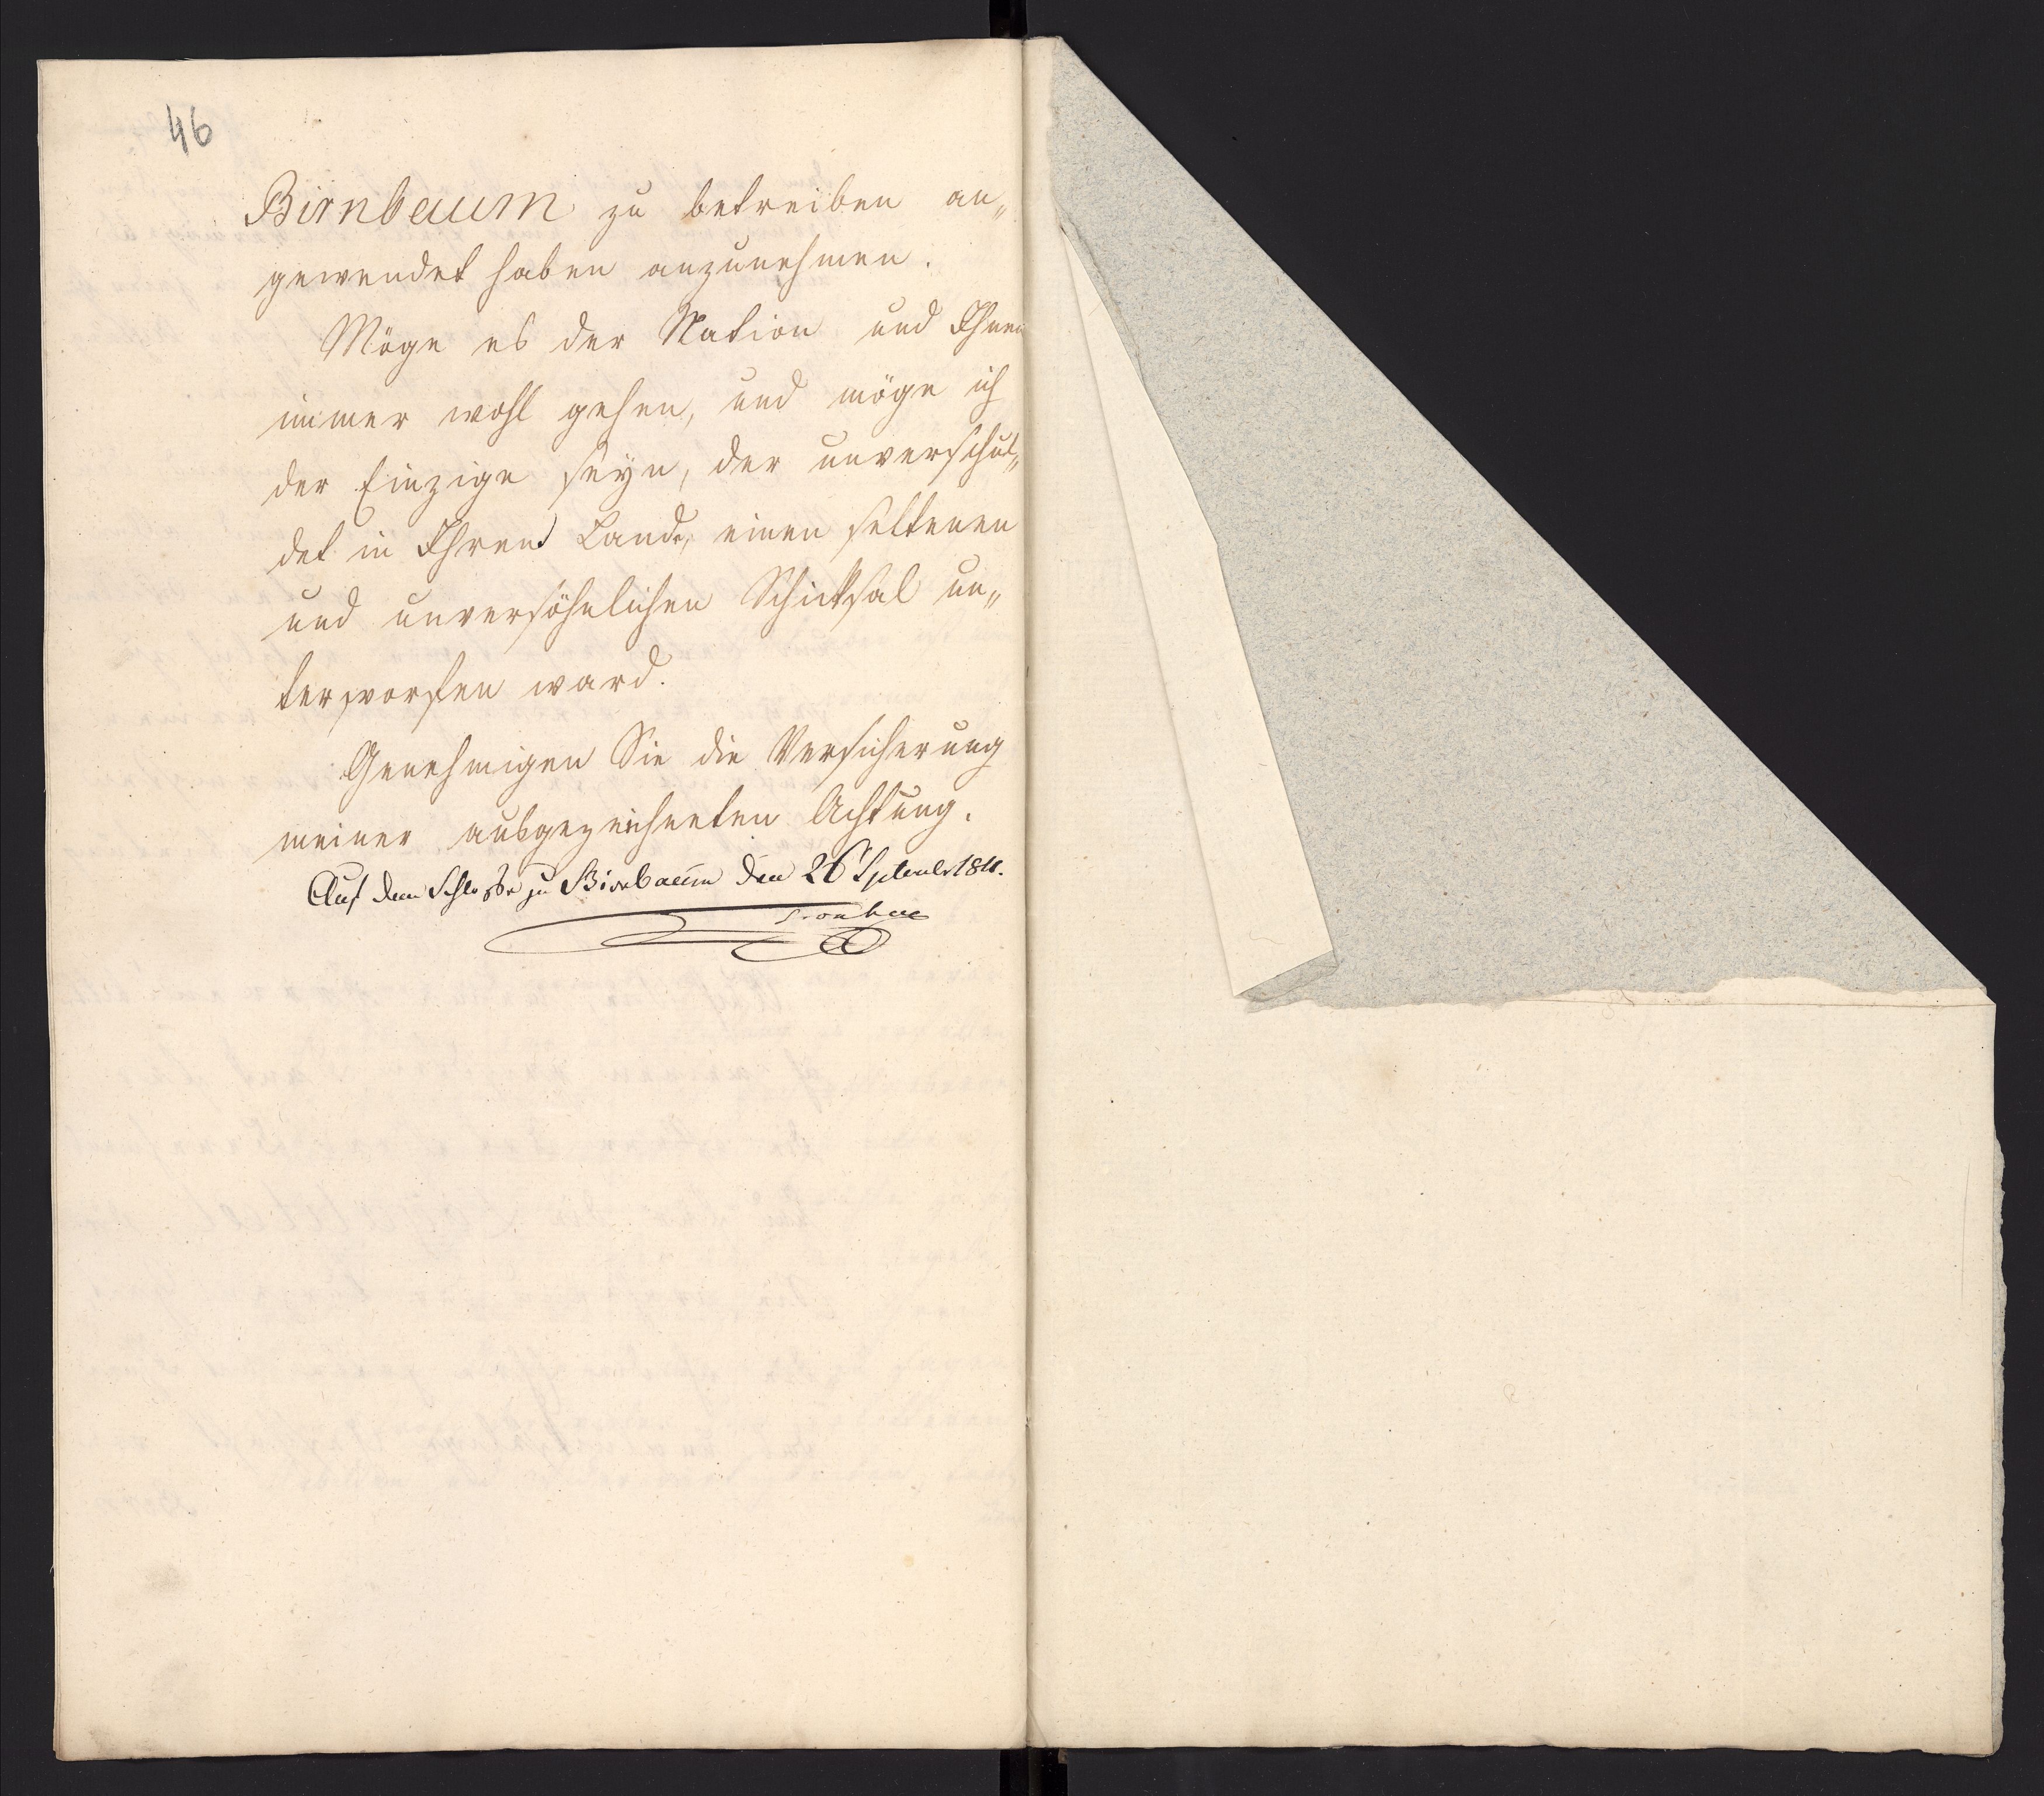 46
Birnbaum zu betreiben an„
gewendet haben anzunehmen.
Möge es der Nation und Ihnen
immer wohl gehen, und möge ich
der Einzige seyn, der unverschul„
det in Ihrem Lande, einen seltenen
und unversöhnlichen Schicksal un„
terworfen ward.
Genehmigen Sie die Versicherung
meiner ausgezeichneten Achtung.
Auf dem Schloße zu Birnbaum den 26 September 1811.